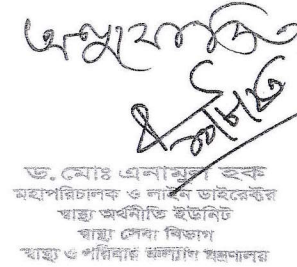 অনুমোদিত
ড. মোঃ এনামুল হক
মহাপরিচালক ও লাইন ডাইরেক্টর
স্বাস্থ্য অর্থনীতি ইউনিট
স্বাস্থ্য সেবা বিভাগ
স্বাস্থ্য ও পরিবার কল্যাণ মন্ত্রণালয়